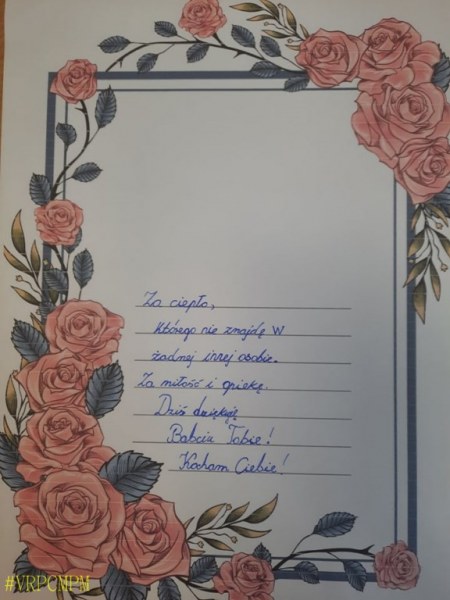 Za ciepło,
którego nie znajdę w
żadnej innej osobie.
Za miłość i opiekę.
Dziś dziękuję
Babciu Tobie!
Kocham Ciebie!
#VRPCMPM